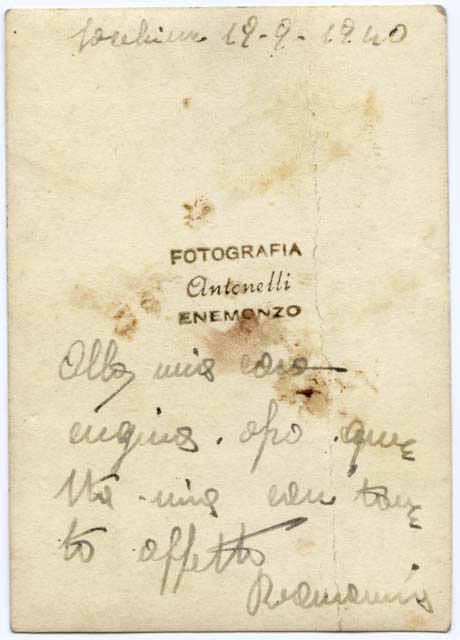 19-9-1940
FOTOGRAFIA
Antonelli
ENEMONZO
Alla mia cara
cugina . ofro . que=
sta mia con tan=
to affetto